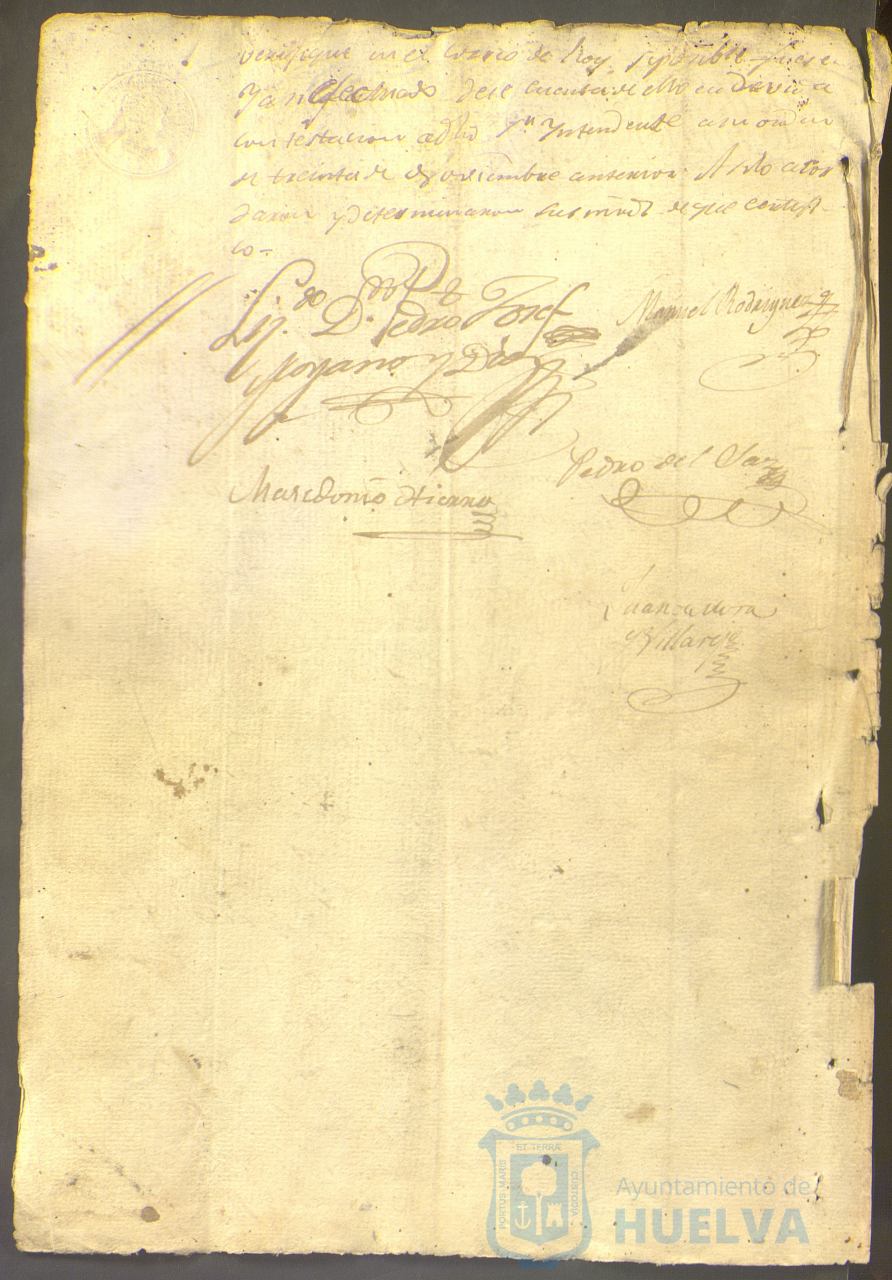 verifique en el correo de hoy, si posible fuere
y an efectuado dese cuenta de ello en devida
contestacion a dho Yntendente a su orden
de treinta de Noviembre anterior. Asi lo acor
daron y determinaron sus mrds. de que certifi
co=
Lizdo. Dn. Pedro Josef
Moyano y Diaz
Manuel Rodriguez
Pedro del
Masedonio
Juan de mora
y Villarejo
ET TERRÆ
PORTUS MARIS
CUSTODIA
Ayuntamiento de
HUELVA